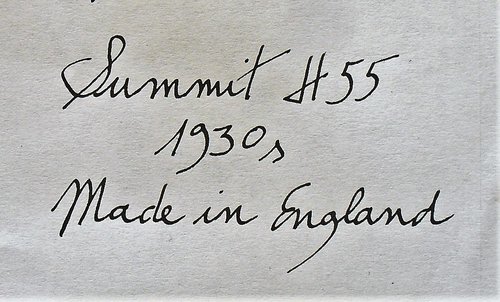 Summit H55
1930s
Made in England